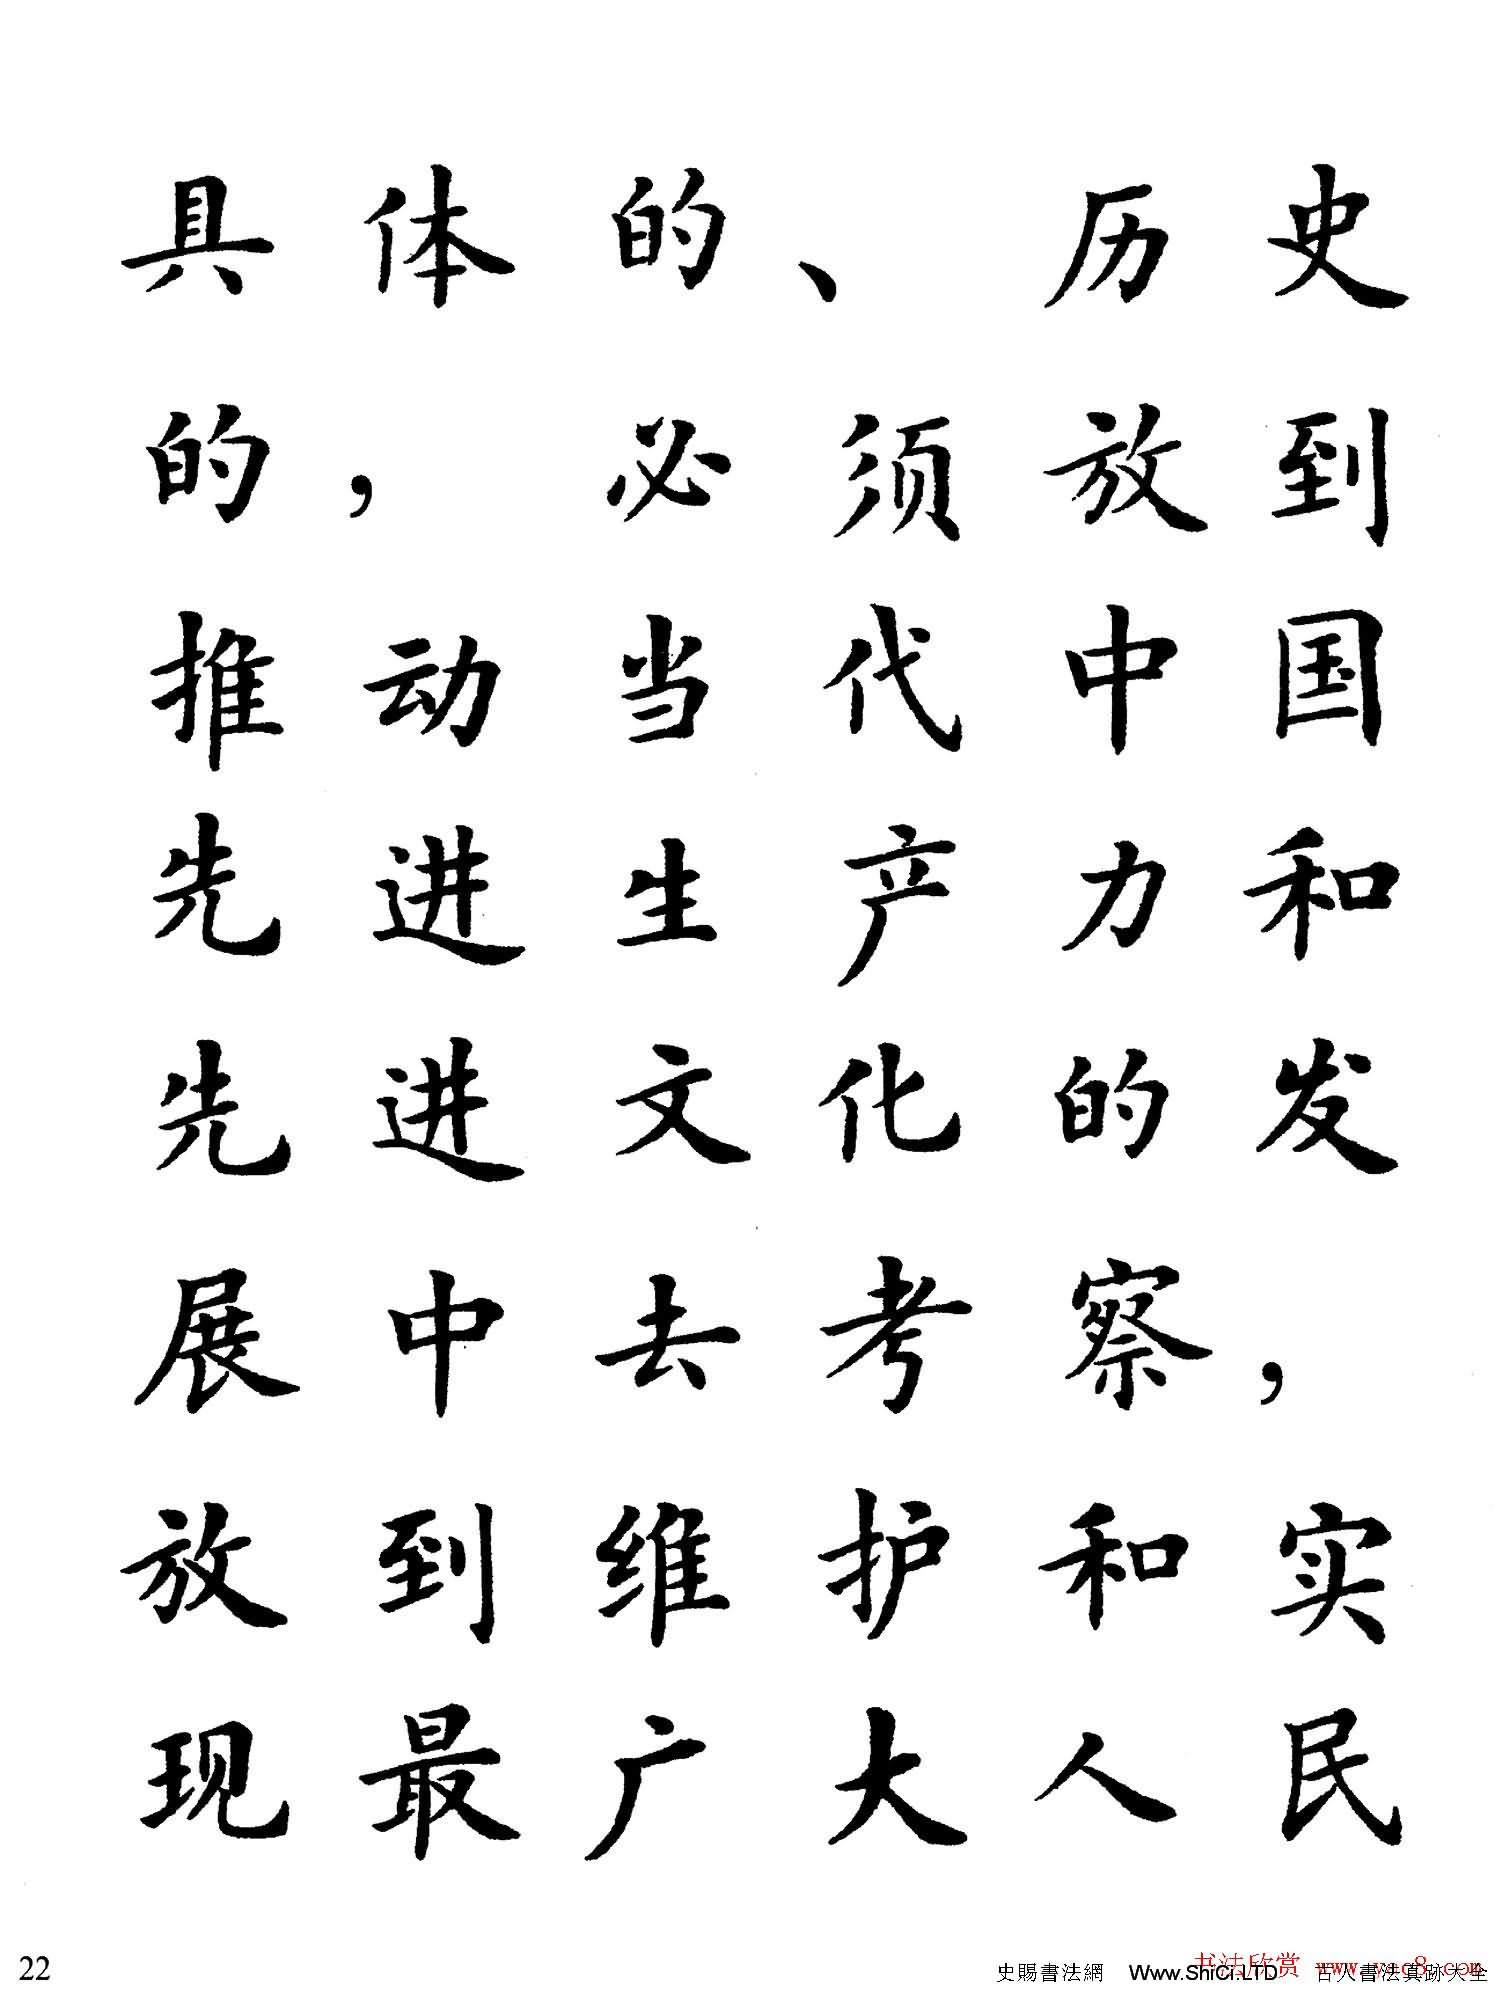 具体的、历史
的，必须放到
推动当代中国
先进生产力和
先进文化的发
展中去考察，
放到维护和实
现最广大人民
22
史賜書法網 Www.ShiCi.LTD 古人書法真跡大全
书法欣赏 www.yac8.com